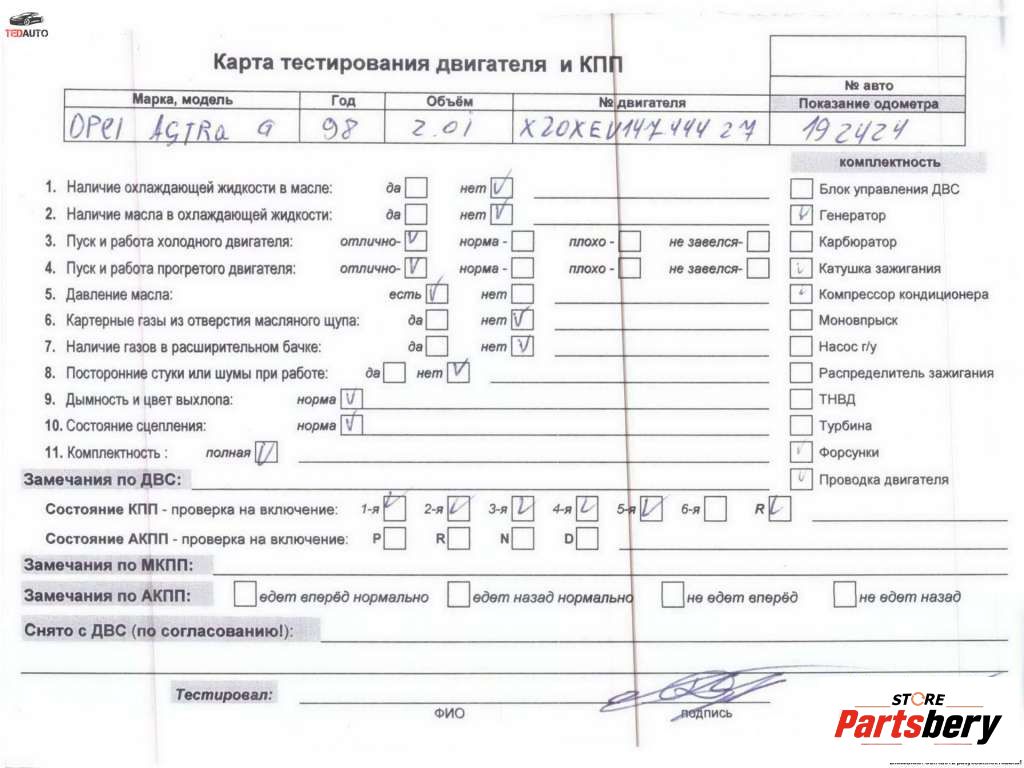 TEDAUTO
Карта тестирования двигателя и КПП
№ авто
Марка, модель Год Объём № двигателя Показание одометра
OPEl ASTRa G 98 2.0i X20XEV14744427 192424
комплектность
1. Наличие охлаждающей жидкости в масле: да нет Блок управления ДВС
2. Наличие масла в охлаждающей жидкости: да нет Генератор
3. Пуск и работа холодного двигателя: отлично- норма - плохо - не завелся- Карбюратор
4. Пуск и работа прогретого двигателя: отлично- норма - плохо - не завелся- Катушка зажигания
5. Давление масла: есть нет Компрессор кондиционера
6. Картерные газы из отверстия масляного щупа: да нет Моновпрыск
7. Наличие газов в расширительном бачке: да нет Насос г/у
8. Посторонние стуки или шумы при работе: да нет Распределитель зажигания
9. Дымность и цвет выхлопа: норма ТНВД
10. Состояние сцепления: норма Турбина
11. Комплектность : полная Форсунки
Замечания по ДВС: Проводка двигателя
Состояние КПП - проверка на включение: 1-я 2-я 3-я 4-я 5-я 6-я R
Состояние АКПП - проверка на включение: P R N D
Замечания по МКПП:
Замечания по АКПП: едет вперёд нормально едет назад нормально не едет вперёд не едет назад
Снято с ДВС (по согласованию!):
Тестировал:
ФИО подпись
STORE
Partsbery